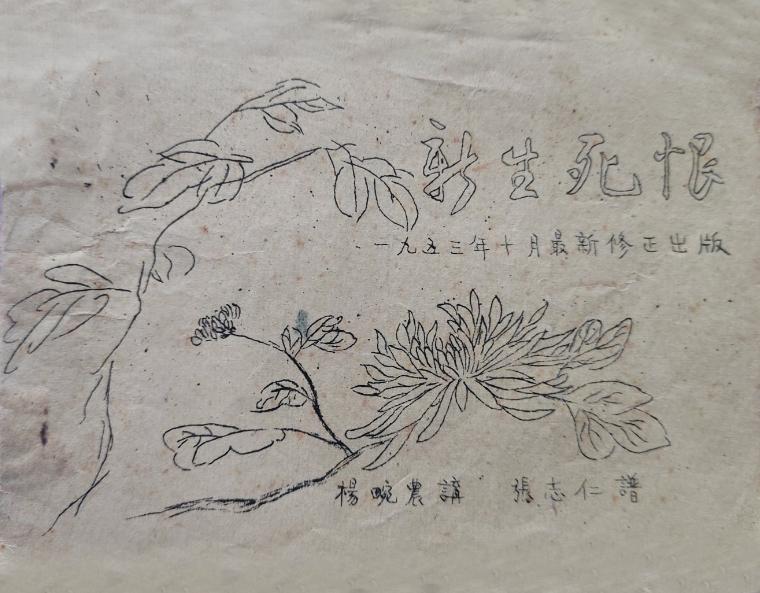 新生死恨
一九五三年十月最新修正出版
楊畹農講 張志仁譜